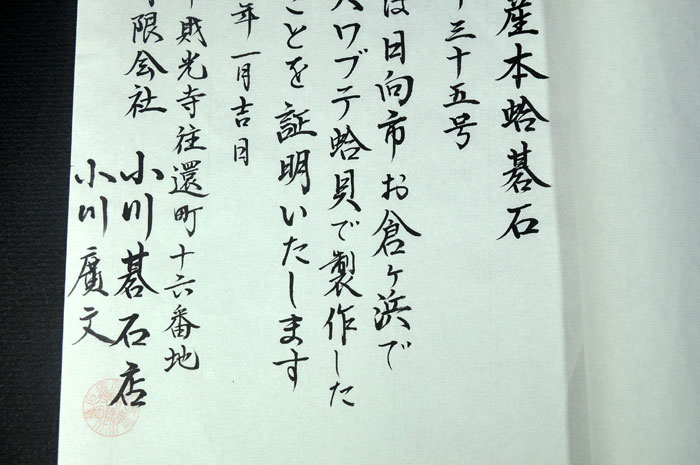 産本蛤碁石
三十五号
は日向市お倉ヶ浜で
スワブテ蛤貝で製作した
ことを証明いたします
年一月吉日
財光寺往還町十六番地
限会社 小川碁石店
小川廣文